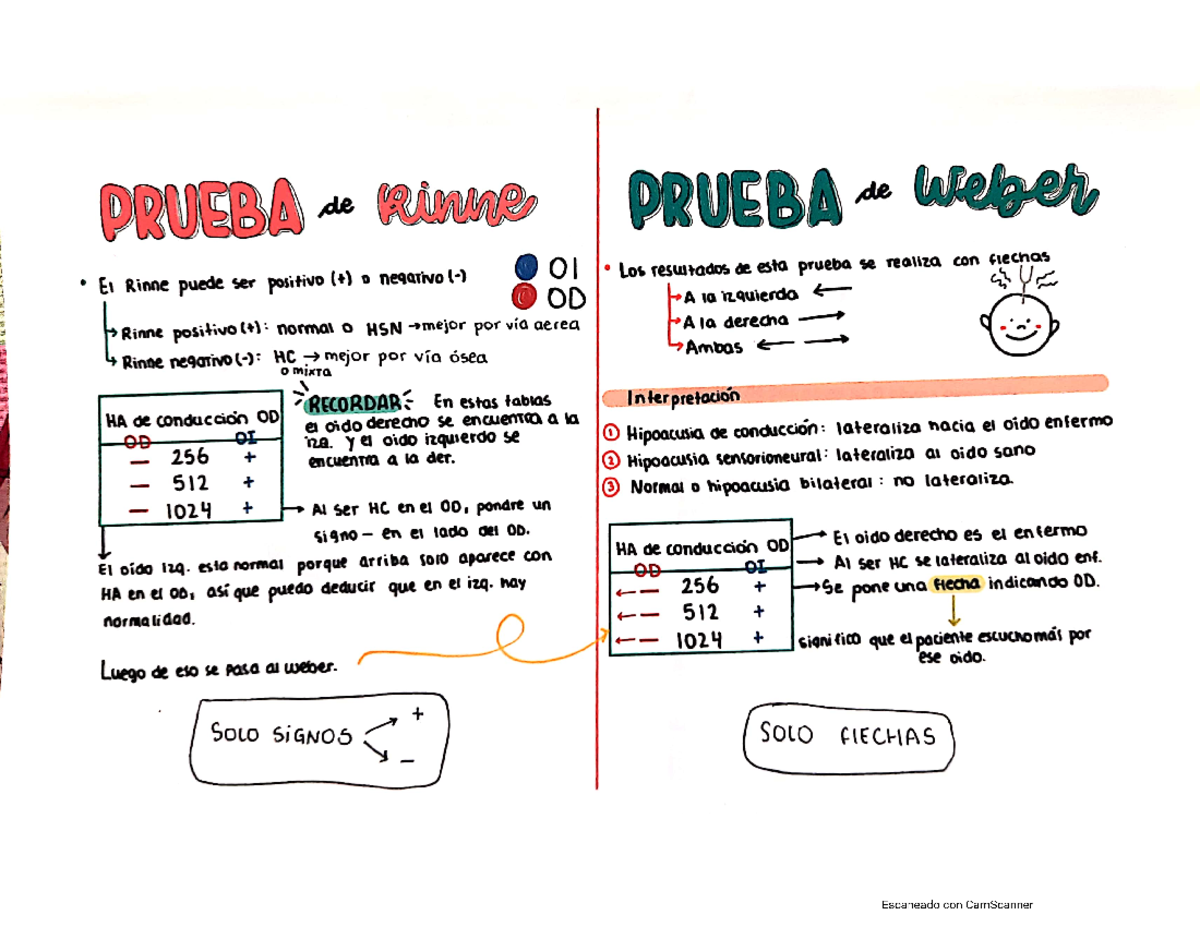 PRUEBA de Rinne
• El Rinne puede ser positivo (+) o negativo (-)
OI
OD
→ Rinne positivo (+): normal o HSN → mejor por vía aerea
→ Rinne negativo (-): HC → mejor por vía ósea
o mixta
HA de conducción OD
OD OI
— 256 +
— 512 +
— 1024 +
RECORDAR: En estas tablas
el oido derecho se encuentra a la
izq. y el oido izquierdo se
encuentra a la der.
→ Al ser HC en el OD, pondre un
signo – en el lado del OD.
El oído Izq. esta normal porque arriba solo aparece con
HA en el OD, así que puedo deducir que en el izq. hay
normalidad.
Luego de eso se pasa al weber.
SOLO SiGNOS +
–
PRUEBA de Weber
• Los resultados de esta prueba se realiza con flechas
→ A la izquierda ←
→ A la derecha →
→ Ambas ← →
Interpretación
① Hipoacusia de conducción: lateraliza hacia el oido enfermo
② Hipoacusia sensorioneural: lateraliza al oido sano
③ Normal o hipoacusia bilateral: no lateraliza
HA de conducción OD
OD OI
← — 256 +
← — 512 +
← — 1024 +
→ El oido derecho es el enfermo
→ Al ser HC se lateraliza al oido enf.
→ Se pone una flecha indicando OD.
significo que el paciente escucho más por
ese oido.
SOLO FlECHAS
Escaneado con CamScanner